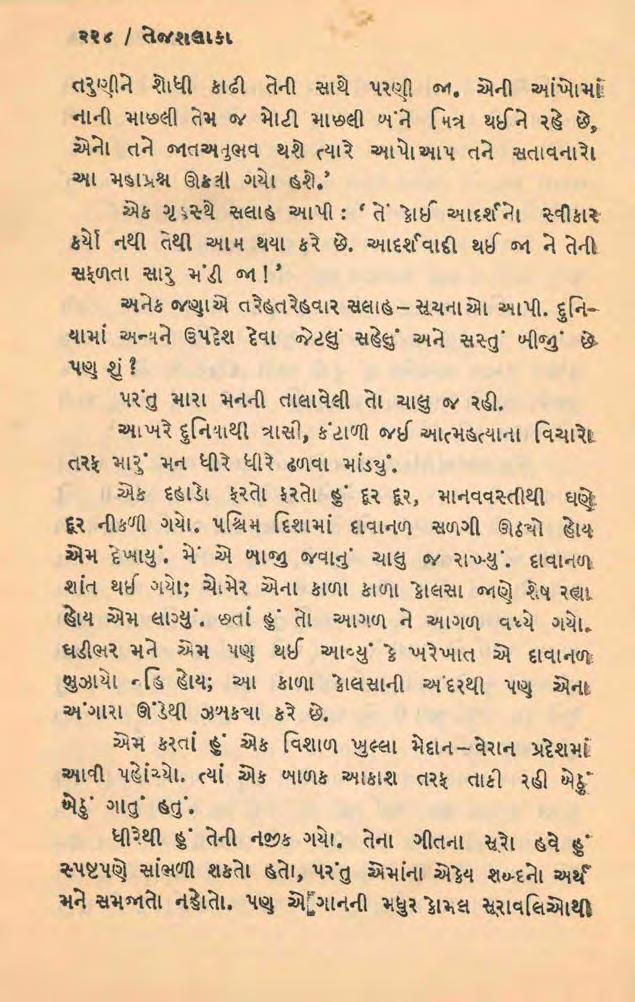 ૨૨૪ / તેજશલાકા
તરુણીને શોધી કાઢી તેની સાથે પરણી જા. એની આંખોમાં
નાની માછલી તેમ જ મોટી માછલી બંને મિત્ર થઈને રહે છે,
એનો તને જાતઅનુભવ થશે ત્યારે આપોઆપ તને સતાવનારો
આ મહાપ્રશ્ન ઊકલી ગયો હશે.’
એક ગૃહસ્થે સલાહ આપી : ‘ તેં કોઈ આદર્શનો સ્વીકાર
કર્યો નથી તેથી આમ થયા કરે છે. આદર્શવાદી થઈ જા ને તેની
સફળતા સારુ મંડી જા ! ’
અનેક જણાએ તરેહતરેહવાર સલાહ–સૂચનાઓ આપી. દુનિ-
યામાં અન્યને ઉપદેશ દેવા જેટલું સહેલું અને સસ્તું બીજું છે
પણ શું ?
પરંતુ મારા મનની તાલાવેલી તો ચાલુ જ રહી.
આખરે દુનિયાથી ત્રાસી, કંટાળી જઈ આત્મહત્યાના વિચારો
તરફ મારું મન ધીરે ધીરે ઢળવા માંડ્યું.
એક દહાડો ફરતો ફરતો હું દૂર દૂર, માનવવસ્તીથી ઘણે
દૂર નીકળી ગયો. પશ્ચિમ દિશામાં દાવાનળ સળગી ઊઠ્યો હોય
એમ દેખાયું. મેં એ બાજુ જવાનું ચાલુ જ રાખ્યું. દાવાનળ
શાંત થઈ ગયો; ચોમેર એના કાળા કાળા કોલસા જાણે શેષ રહ્યા
હોય એમ લાગ્યું. છતાં હું તો આગળ ને આગળ વધ્યે ગયો.
ઘડીભર મને એમ પણ થઈ આવ્યું કે ખરેખાત એ દાવાનળ
બુઝાયો નહિ હોય; આ કાળા કોલસાની અંદરથી પણ એના
અંગારા ઊંડેથી ઝબકયા કરે છે.
એમ કરતાં હું એક વિશાળ ખુલ્લા મેદાન–વેરાન પ્રદેશમાં
આવી પહોંચ્યો. ત્યાં એક બાળક આકાશ તરફ તાકી રહી બેઠું
બેઠું ગાતું હતું.
ધીરેથી હું તેની નજીક ગયો. તેના ગીતના સૂરો હવે હું
સ્પષ્ટપણે સાંભળી શકતો હતો, પરંતુ એમાંના એકેય શબ્દનો અર્થ
મને સમજાતો નહોતો. પણ એ ગાનની મધુર કોમલ સૂરાવલિઓથી